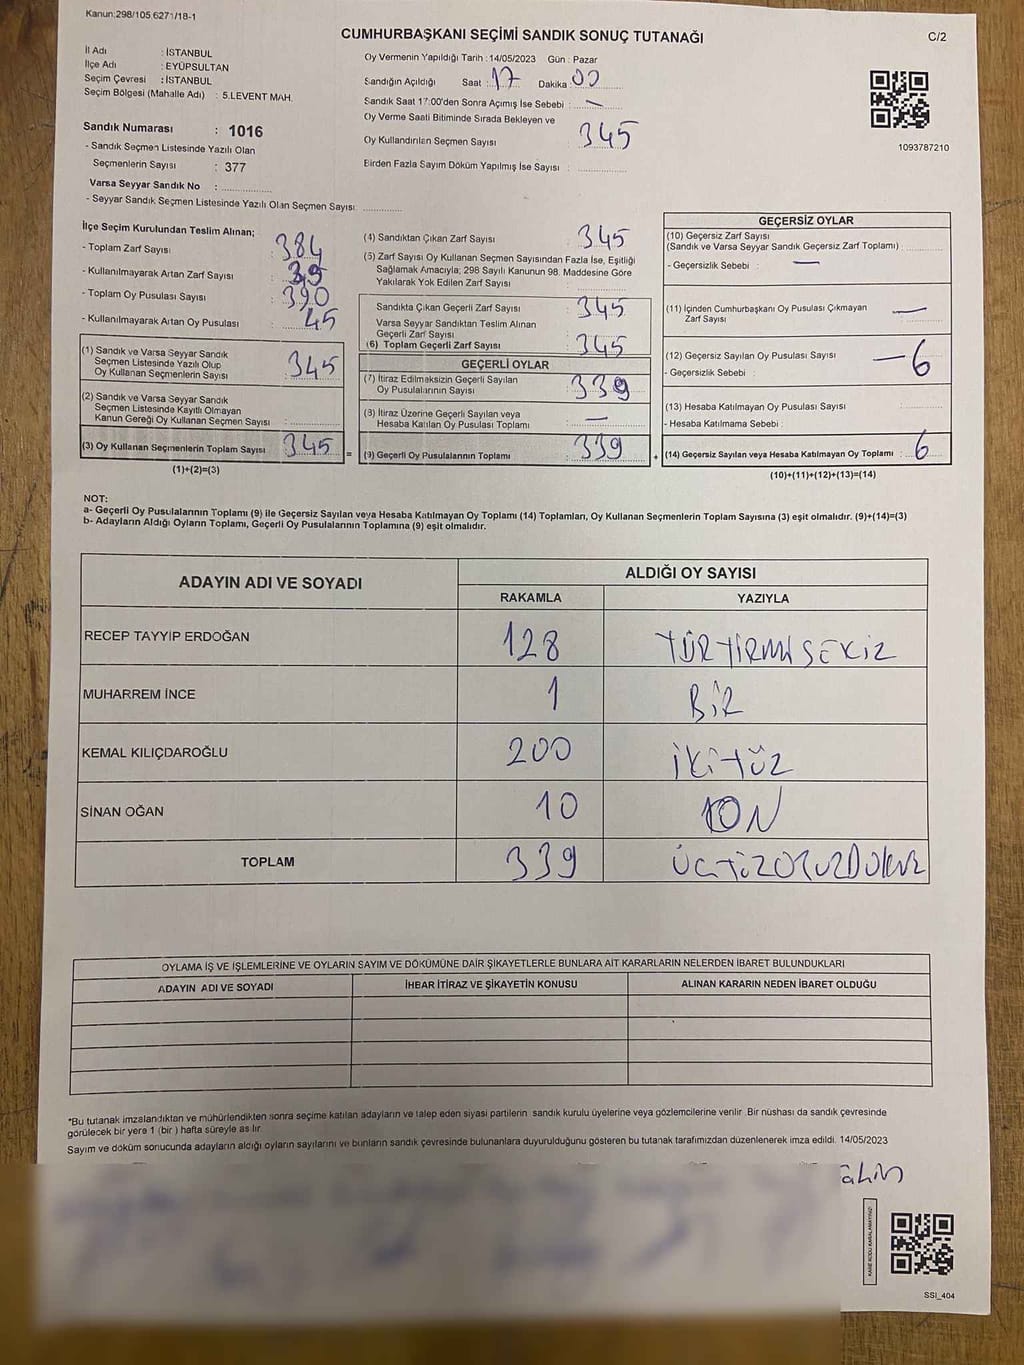 Kanun:298/105,6271/18-1
CUMHURBAŞKANI SEÇİMİ SANDIK SONUÇ TUTANAĞI
C/2
İl Adı : İSTANBUL
İlçe Adı : EYÜPSULTAN
Seçim Çevresi : İSTANBUL
Seçim Bölgesi (Mahalle Adı) : 5.LEVENT MAH.
Oy Vermenin Yapıldığı Tarih : 14/05/2023 Gün : Pazar
Sandığın Açıldığı Saat : 17 Dakika : 00
Sandık Saat 17:00'den Sonra Açımış İse Sebebi : —
Oy Verme Saati Bitiminde Sırada Bekleyen ve
Oy Kullandırılan Seçmen Sayısı : 345
Birden Fazla Sayım Döküm Yapılmış İse Sayısı :
1093787210
Sandık Numarası : 1016
- Sandık Seçmen Listesinde Yazılı Olan
Seçmenlerin Sayısı : 377
Varsa Seyyar Sandık No :
- Seyyar Sandık Seçmen Listesinde Yazılı Olan Seçmen Sayısı :
İlçe Seçim Kurulundan Teslim Alınan;
- Toplam Zarf Sayısı : 384
- Kullanılmayarak Artan Zarf Sayısı : 39
- Toplam Oy Pusulası Sayısı : 390
- Kullanılmayarak Artan Oy Pusulası : 45
(1) Sandık ve Varsa Seyyar Sandık
Seçmen Listesinde Yazılı Olup
Oy Kullanan Seçmenlerin Sayısı : 345
(2) Sandık ve Varsa Seyyar Sandık
Seçmen Listesinde Kayıtlı Olmayan
Kanun Gereği Oy Kullanan Seçmen Sayısı :
(3) Oy Kullanan Seçmenlerin Toplam Sayısı : 345 =
(1)+(2)=(3)
(4) Sandıktan Çıkan Zarf Sayısı : 345
(5) Zarf Sayısı Oy Kullanan Seçmen Sayısından Fazla İse, Eşitliği
Sağlamak Amacıyla; 298 Sayılı Kanunun 98. Maddesine Göre
Yakılarak Yok Edilen Zarf Sayısı :
Sandıkta Çıkan Geçerli Zarf Sayısı : 345
Varsa Seyyar Sandıktan Teslim Alınan
Geçerli Zarf Sayısı :
(6) Toplam Geçerli Zarf Sayısı : 345
GEÇERLİ OYLAR
(7) İtiraz Edilmeksizin Geçerli Sayılan
Oy Pusulalarının Sayısı : 339
(8) İtiraz Üzerine Geçerli Sayılan veya
Hesaba Katılan Oy Pusulası Toplamı : —
(9) Geçerli Oy Pusulalarının Toplamı : 339 +
GEÇERSİZ OYLAR
(10) Geçersiz Zarf Sayısı
(Sandık ve Varsa Seyyar Sandık Geçersiz Zarf Toplamı) :
- Geçersizlik Sebebi : —
(11) İçinden Cumhurbaşkanı Oy Pusulası Çıkmayan
Zarf Sayısı : —
(12) Geçersiz Sayılan Oy Pusulası Sayısı : — 6
- Geçersizlik Sebebi :
(13) Hesaba Katılmayan Oy Pusulası Sayısı :
- Hesaba Katılmama Sebebi :
(14) Geçersiz Sayılan veya Hesaba Katılmayan Oy Toplamı : 6
(10)+(11)+(12)+(13)=(14)
NOT:
a- Geçerli Oy Pusulalarının Toplamı (9) ile Geçersiz Sayılan veya Hesaba Katılmayan Oy Toplamı (14) Toplamları, Oy Kullanan Seçmenlerin Toplam Sayısına (3) eşit olmalıdır. (9)+(14)=(3)
b- Adayların Aldığı Oyların Toplamı, Geçerli Oy Pusulalarının Toplamına (9) eşit olmalıdır.
ADAYIN ADI VE SOYADI
ALDIĞI OY SAYISI
RAKAMLA YAZIYLA
RECEP TAYYİP ERDOĞAN 128 YÜZ YİRMİ SEKİZ
MUHARREM İNCE 1 BİR
KEMAL KILIÇDAROĞLU 200 İKİ YÜZ
SİNAN OĞAN 10 ON
TOPLAM 339 ÜÇ YÜZ OTUZ DOKUZ
OYLAMA İŞ VE İŞLEMLERİNE VE OYLARIN SAYIM VE DÖKÜMÜNE DAİR ŞİKAYETLERLE BUNLARA AİT KARARLARIN NELERDEN İBARET BULUNDUKLARI
ADAYIN ADI VE SOYADI İHBAR İTİRAZ VE ŞİKAYETİN KONUSU ALINAN KARARIN NEDEN İBARET OLDUĞU
*Bu tutanak imzalandıktan ve mühürlendikten sonra seçime katılan adayların ve talep eden siyasi partilerin sandık kurulu üyelerine veya gözlemcilerine verilir. Bir nüshası da sandık çevresinde
görülecek bir yere 1 (bir ) hafta süreyle asılır.
Sayım ve döküm sonucunda adayların aldığı oyların sayılarını ve bunların sandık çevresinde bulunanlara duyurulduğunu gösteren bu tutanak tarafımızdan düzenlenerek imza edildi. 14/05/2023
SSI_404